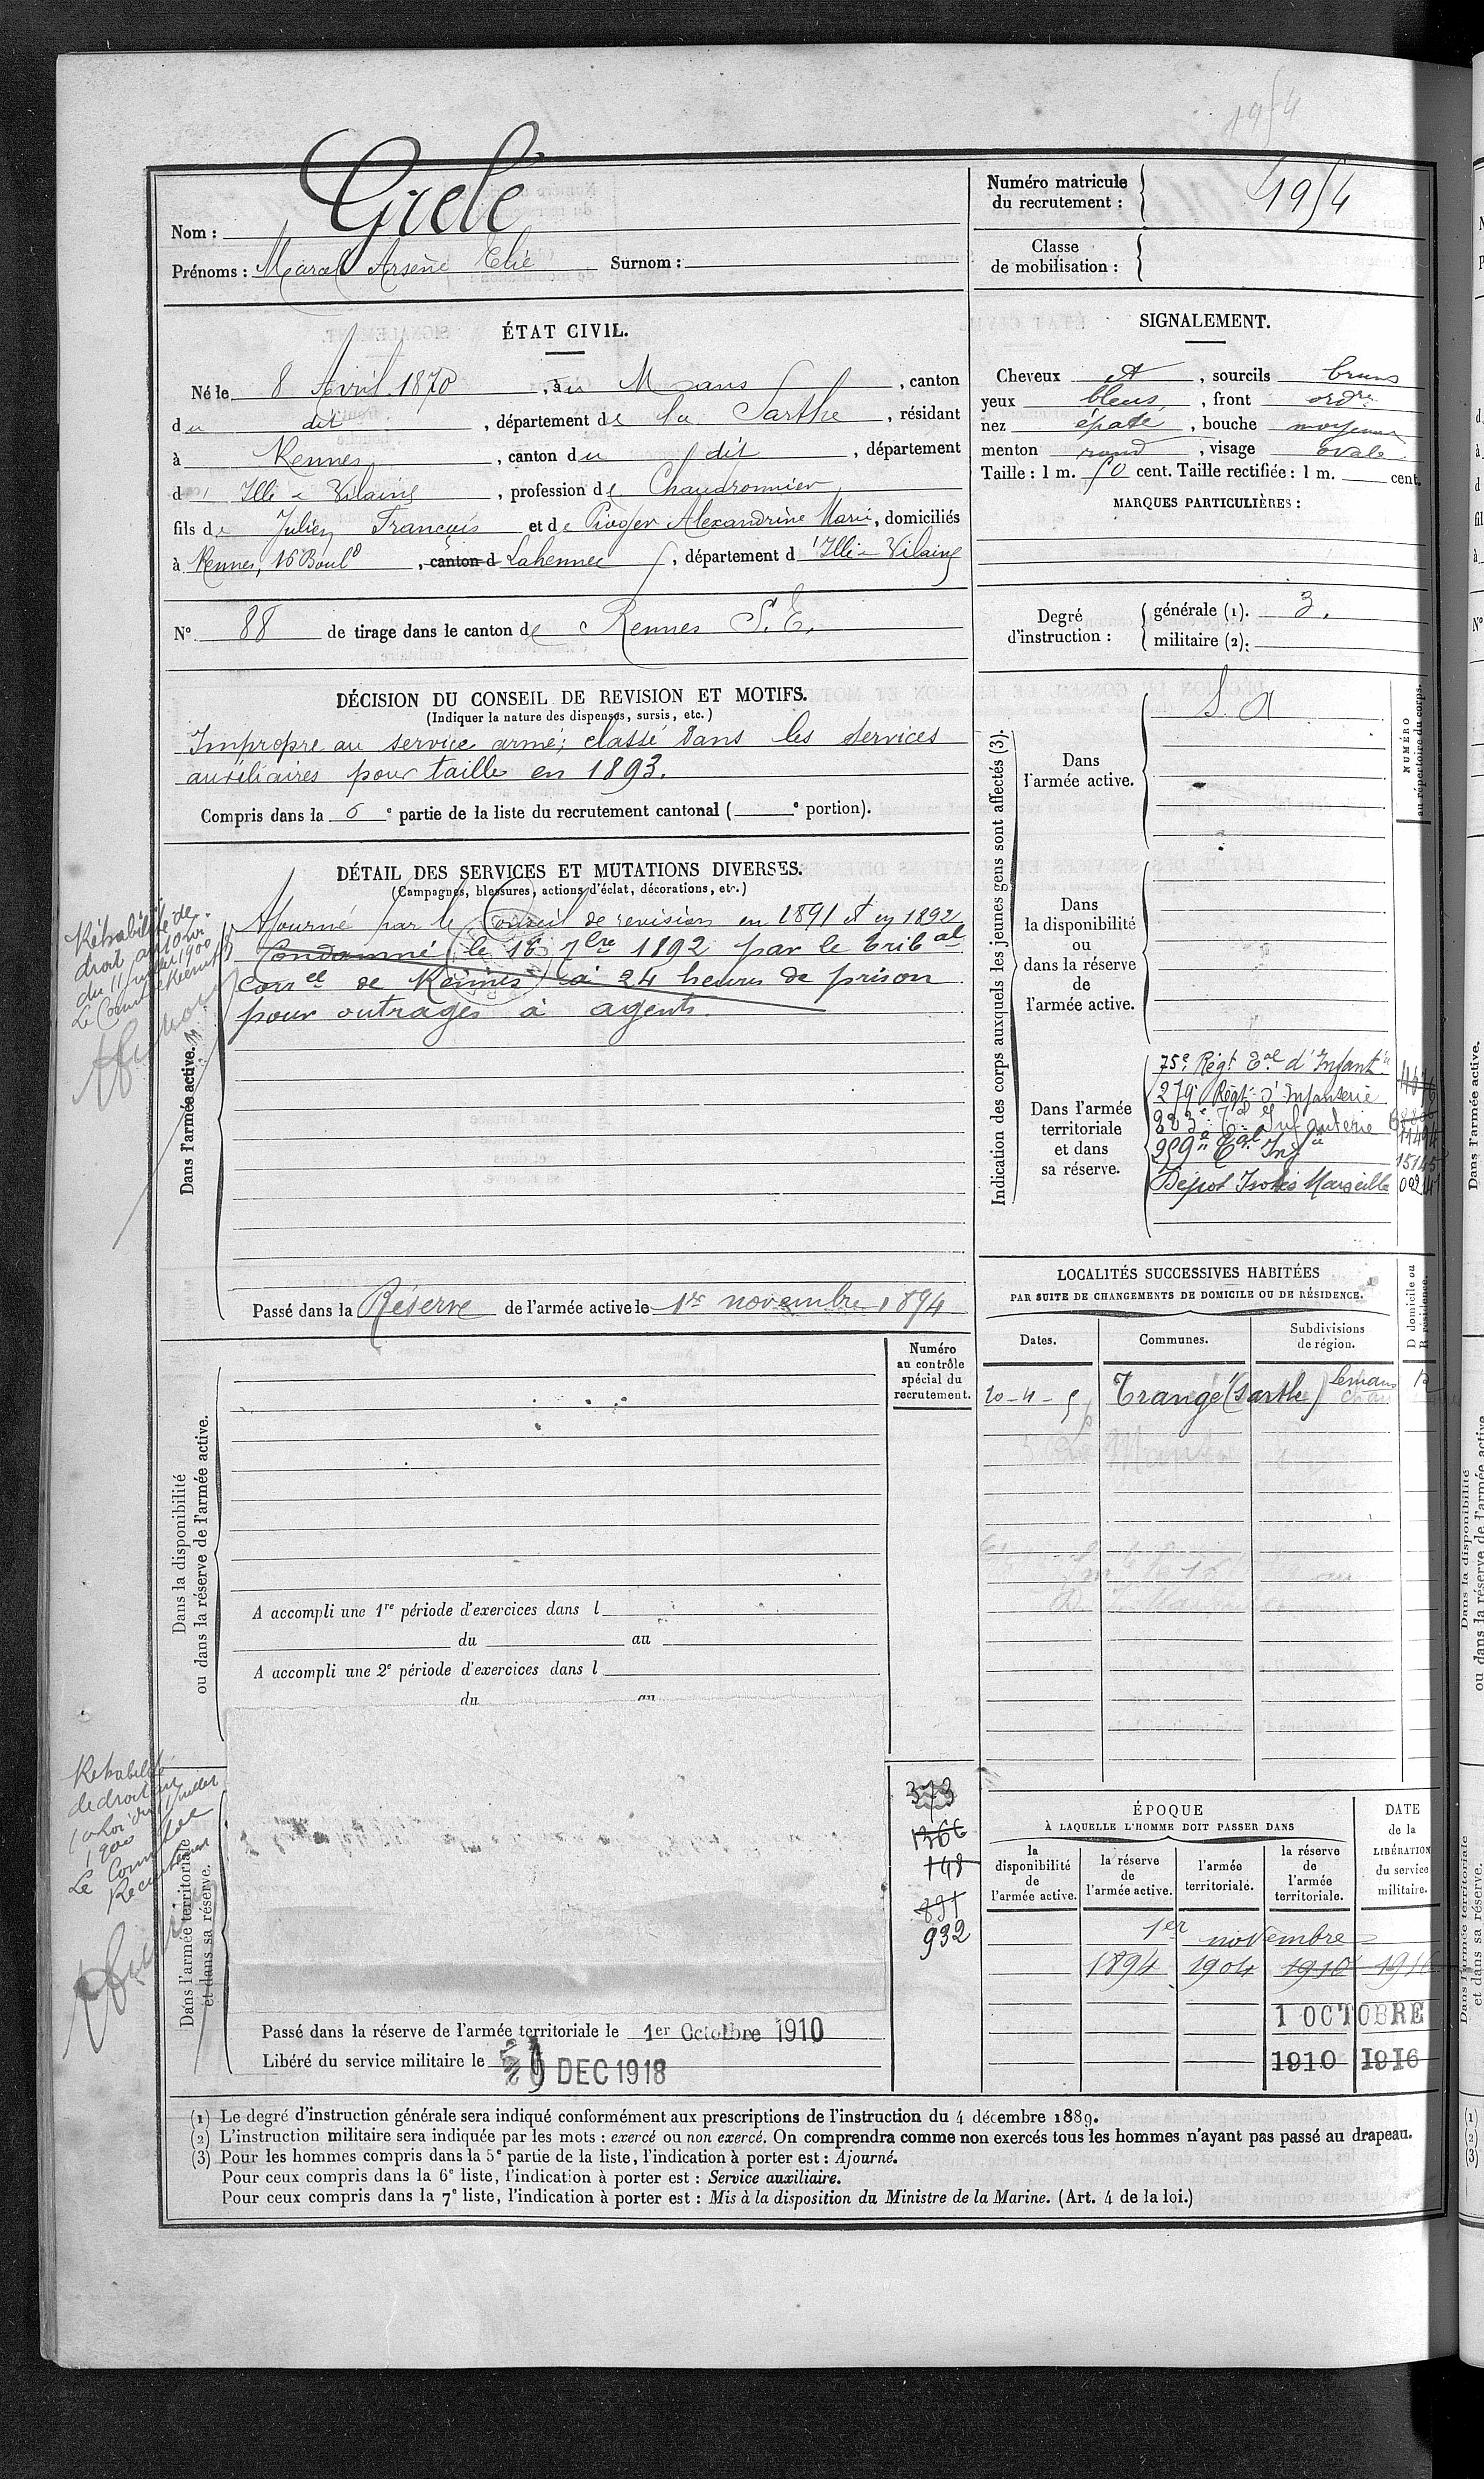 1954
Nom : Grelé
Prénoms : Marcel Arsène Elie Surnom :
Numéro matricule du recrutement : 1954
Classe de mobilisation :
ÉTAT CIVIL.
Né le 8 Avril 1870, au Mans, canton
du dit, département de la Sarthe, résidant
à Rennes, canton du dit, département
d'Ille-&-Vilaine, profession de Chaudronnier
fils de Julien François et de Alexandrine Marie, domiciliés
à Rennes, 16 Boul^d, canton d Lahennec, département d'Ille-&-Vilaine
N° 88 de tirage dans le canton de Rennes S. E.
SIGNALEMENT.
Cheveux et, sourcils bruns
yeux bleus, front ord^re
nez épaté, bouche moyenne
menton rond, visage ovale
Taille : 1 m. 50 cent. Taille rectifiée : 1 m. cent.
MARQUES PARTICULIÈRES :
Degré d'instruction :
générale (1). 3.
militaire (2):
DÉCISION DU CONSEIL DE REVISION ET MOTIFS.
(Indiquer la nature des dispenses, sursis, etc.)
Impropre au service armé; classé dans les services
auxiliaires pour taille en 1893.
Compris dans la 6e partie de la liste du recrutement cantonal ( e portion).
DÉTAIL DES SERVICES ET MUTATIONS DIVERSES.
(Campagnes, blessures, actions d'éclat, décorations, etc.)
Réhabilité de
droit
du 11 juillet 1900
Le Com^t de Recrut^t
Dans l'armée active.
Ajourné par le Conseil de revision en 1891 et en 1892
Condamné le 16 7bre 1892 par le tribal
correl de Rennes à 24 heures de prison
pour outrages à agents.
Passé dans la Réserve de l'armée active le 1er novembre 1894
Indication des corps auxquels les jeunes gens sont affectés (3).
NUMÉRO au répertoire du corps.
Dans l'armée active.
S. A
Dans la disponibilité ou dans la réserve de l'armée active.
Dans l'armée territoriale et dans sa réserve.
75e Régt Eal d'Infant^ie
279 Régt d'Infanterie
283e Infanterie
Dépot Isolés Marseille
LOCALITÉS SUCCESSIVES HABITÉES
PAR SUITE DE CHANGEMENTS DE DOMICILE OU DE RÉSIDENCE.
Dates. Communes. Subdivisions de région. D domicile ou R résidence.
Trangé (Sarthe) Le Mans R
Numéro au contrôle spécial du recrutement.
Dans la disponibilité
ou dans la réserve de l'armée active.
A accompli une 1re période d'exercices dans l
du au
A accompli une 2e période d'exercices dans l
du au
Réhabilité
de droit
loi du 11 juillet
1900
Le Comm^t de
Recrutement
Dans l'armée territoriale
et dans sa réserve.
373
1366
148
891
932
Passé dans la réserve de l'armée territoriale le 1er Octobre 1910
Libéré du service militaire le DEC 1918
ÉPOQUE
À LAQUELLE L'HOMME DOIT PASSER DANS
la disponibilité de l'armée active.
la réserve de l'armée active.
l'armée territoriale.
la réserve de l'armée territoriale.
DATE de la LIBÉRATION du service militaire.
1er novembre
1894 1904 1910 1916
1 OCTOBRE
1910 1916
(1) Le degré d'instruction générale sera indiqué conformément aux prescriptions de l'instruction du 4 décembre 1889.
(2) L'instruction militaire sera indiquée par les mots : exercé ou non exercé. On comprendra comme non exercés tous les hommes n'ayant pas passé au drapeau.
(3) Pour les hommes compris dans la 5e partie de la liste, l'indication à porter est : Ajourné.
Pour ceux compris dans la 6e liste, l'indication à porter est : Service auxiliaire.
Pour ceux compris dans la 7e liste, l'indication à porter est : Mis à la disposition du Ministre de la Marine. (Art. 4 de la loi.)